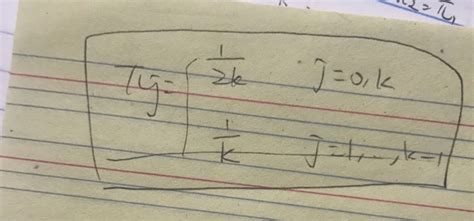 πj = { 1/2k   j=0,k
1/k   j=1,...,k-1